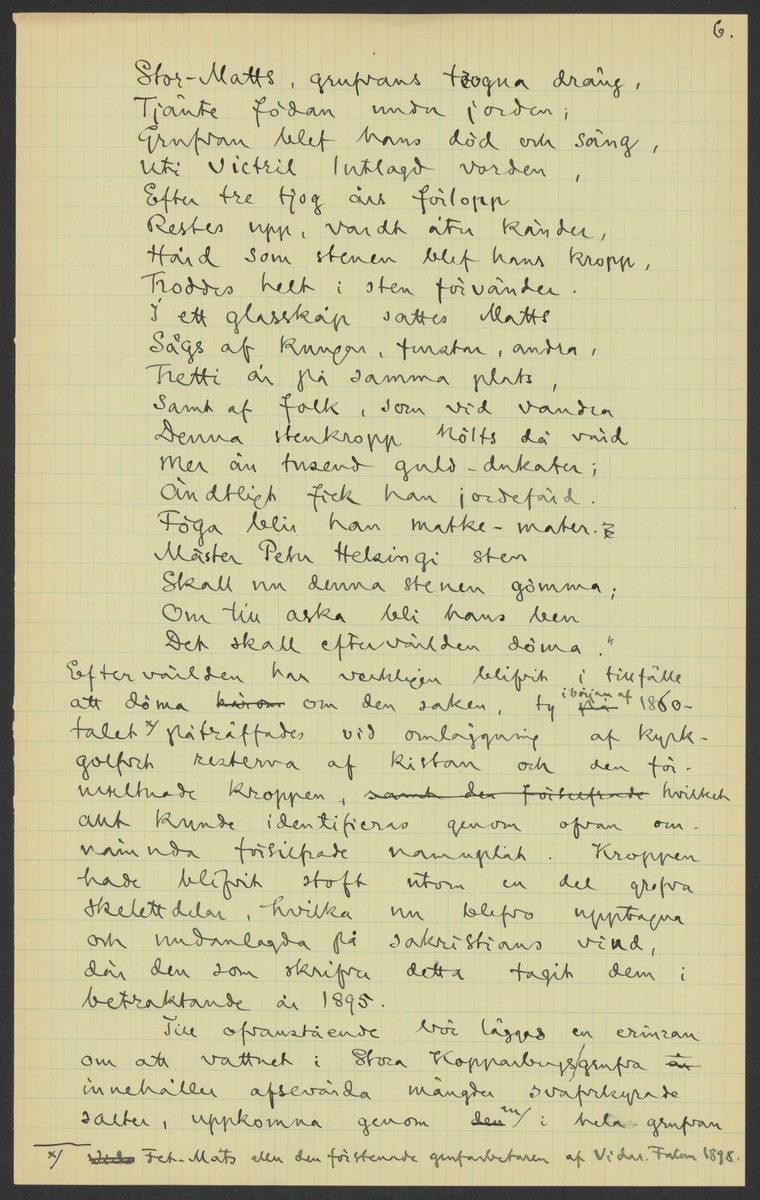 6.
Stor-Matts, grufvans trogna dräng,
Tjänte födan under jorden;
Grufvan blef hans död och säng,
Uti Victril Intlagd vorden,
Efter tre tjog års förlopp
Restes upp, vardt åter känder,
Hård som stenen blef hans kropp,
Troddes helt i sten förvänder.
I ett glasskåp sattes Matts
Sågs af kungar, furstar, andra,
Tretti år på samma plats,
Samt af folk, som vid vandra
Denna stenkropp hölts då värd
Mer än tusend guld-dukater;
Ändtligt fick han jordefärd.
Föga blir han matke-mater.
Mäster Peter Helsingi sten
Skall nu denna stenen gömma;
Om till aska bli hans ben
Det skall efterverlden döma."
Efterverlden har verkligen blifvit i tillfälle
att döma härom om den saken, ty på i början af 1860-
talet x/ påträffades vid omläggning af kyrk-
golfvet resterna af kistan och den för-
multnade kroppen, samt den försilfrade hvilket
allt kunde identifieras genom ofvan om-
nämnda försilfrade namnplåt. Kroppen
hade blifvit stoft utom en del grofva
skelettdelar, hvilka nu blefvo upptagna
och undanlagda på sakristians vind,
där den som skrifver detta tagit dem i
betraktande år 1895.
Till ofvanstående bör läggas en erinran
om att vattnet i Stora Kopparbergs grufva är
innehåller afsevärda mängder svafvelsyrade
salter, uppkomna genom den i hela grufvan
x/ Fet-Mats eller den förstenade grufarbetaren af Vidar. Falun 1898.